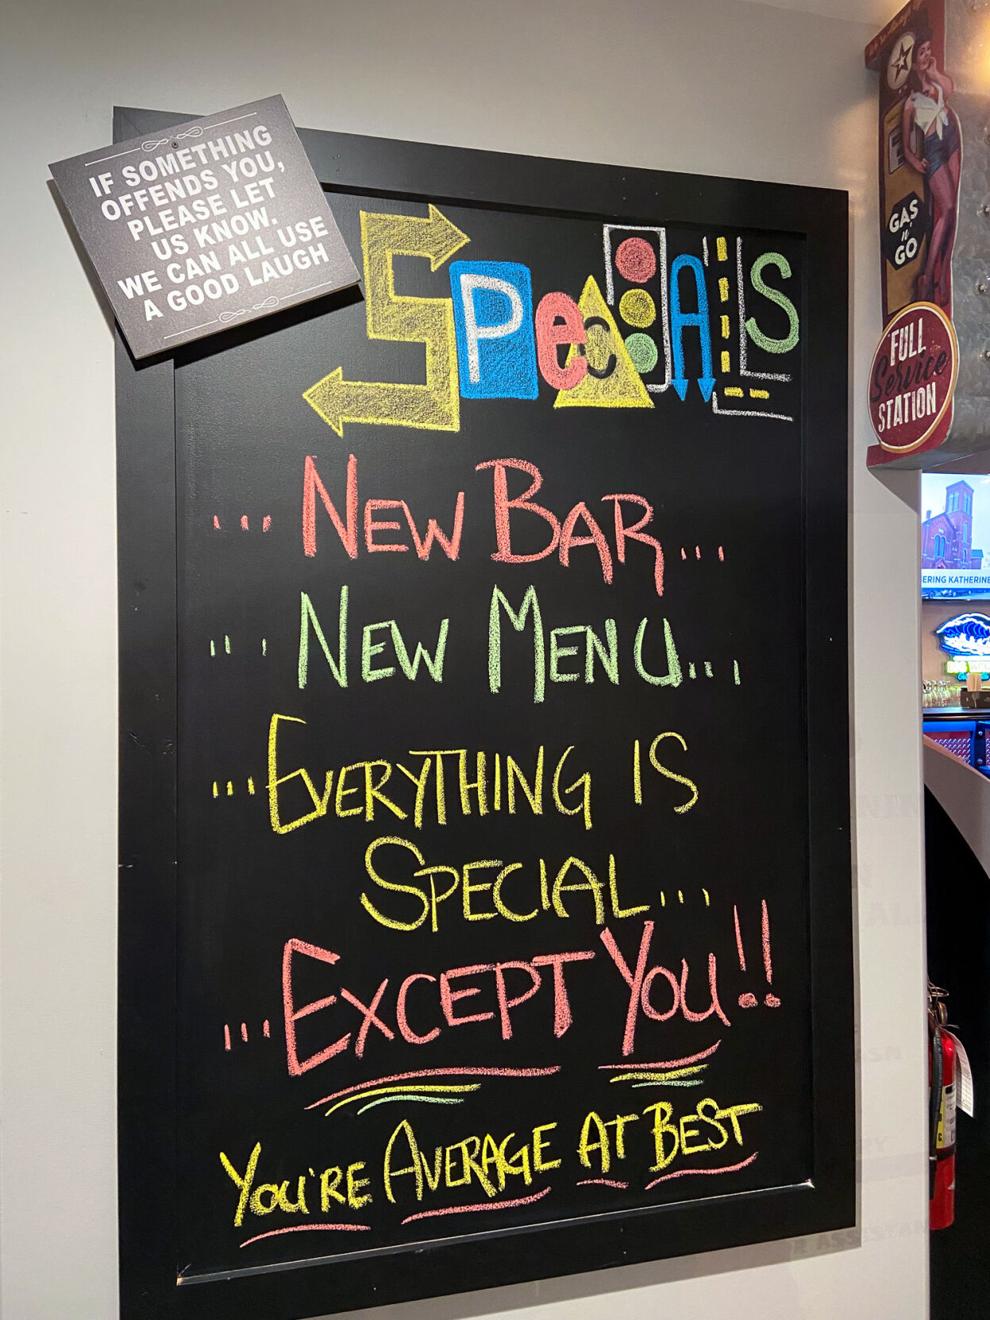 IF SOMETHING
OFFENDS YOU,
PLEASE LET
US KNOW.
WE CAN ALL USE
A GOOD LAUGH
SPecIALS
... NEW BAR...
... NEW MENU...
...EVERYTHING IS
SPECIAL...
...EXCEPT YOU!!
YOU'RE AVERAGE AT BEST
GAS
n'
GO
FULL
Service
STATION
ERING KATHERINE